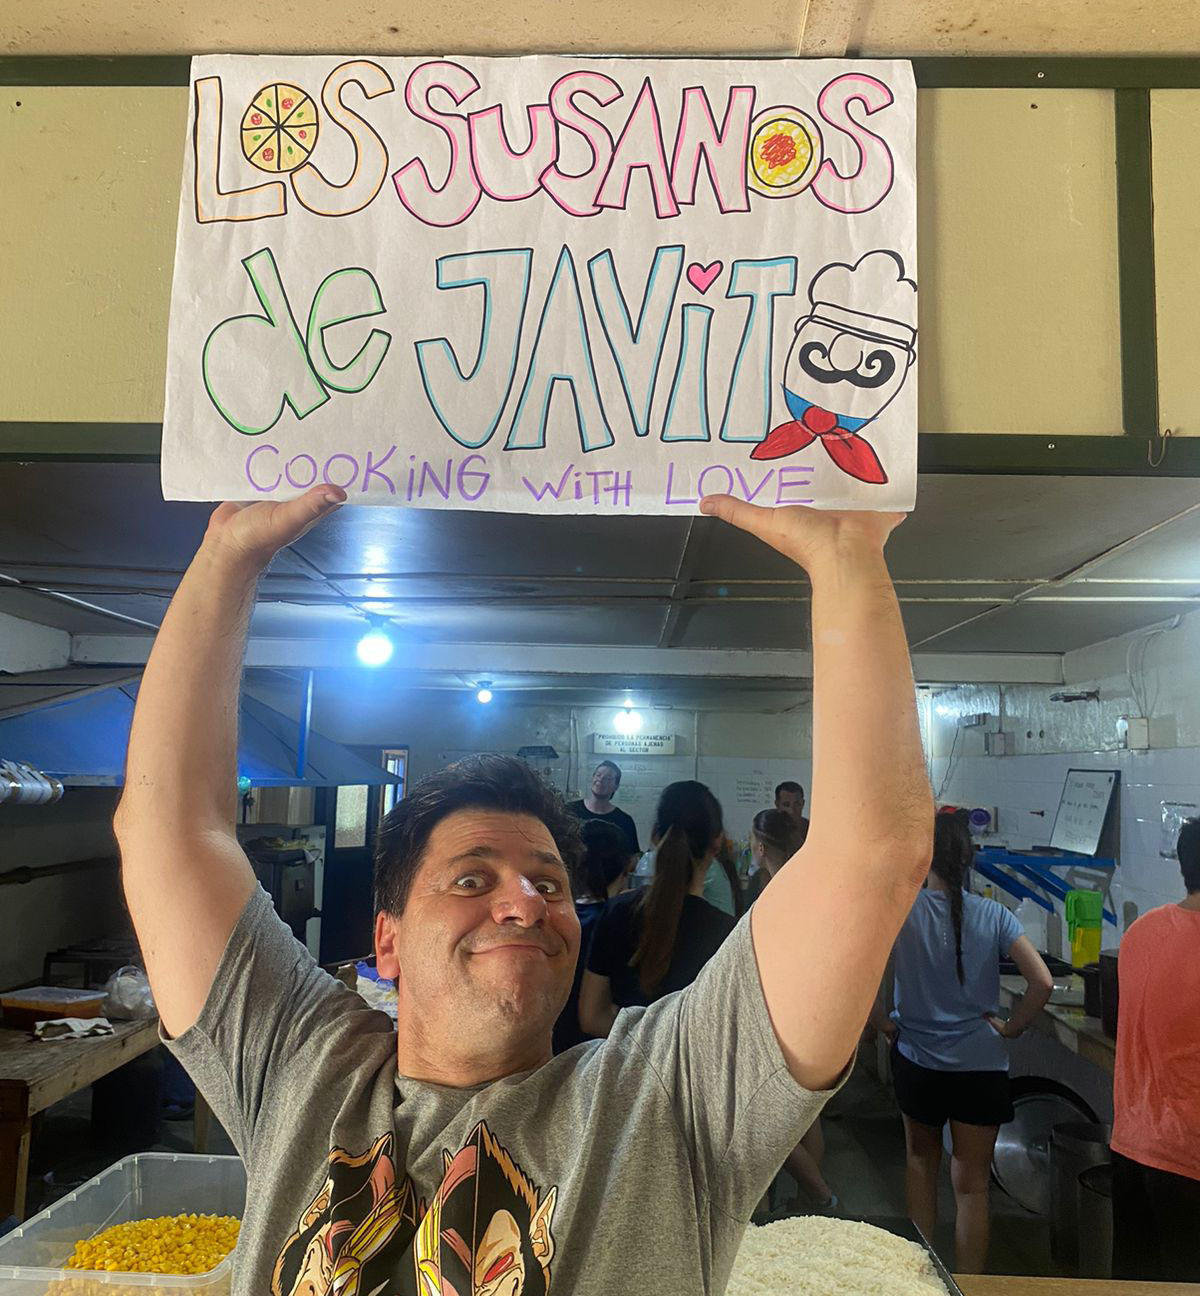 LOS SUSANOS
de JAViTO
COOKiNG WiTH LOVE
"PROHIBIDO LA PERMANENCIA"
DE PERSONAS AJENAS
AL SECTOR